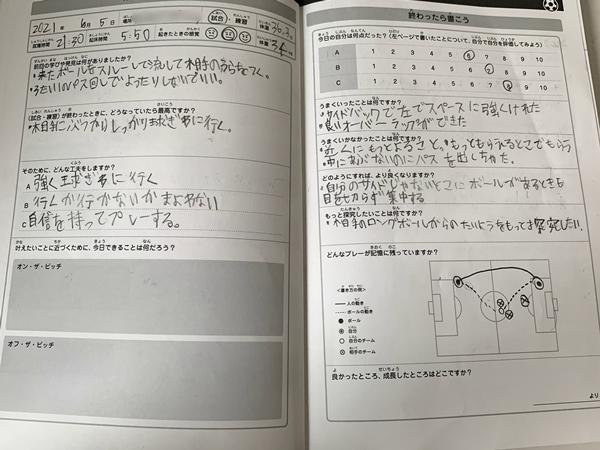 2021年 6月 5日 場所 試合・練習 体温 36.3℃
就寝時間 21:30 起床時間 5:50 起きたときの感覚 体重 34
前回の学びや発見は何がありましたか？
・来たボールをスルーして流して相手のうらをつく。
(試合・練習)が終わったときに、どうなっていたら最高ですか？
・木目手にぶつかりしっかり球ぎわに行く。
そのために、どんな工夫をしますか？
A 強く球ぎわに行く
B 行くか行かないかまよわない
C 自信を持ってプレーする。
叶えたいことに近づくために、今日できることは何だろう？
オン・ザ・ピッチ
オフ・ザ・ピッチ
終わったら書こう
今日の自分は何点だった？(左ページで書いたことについて、自分で自分を評価してみよう)
A 1 2 3 4 5 6 7 8 9 10
B 1 2 3 4 5 6 7 8 9 10
C 1 2 3 4 5 6 7 8 9 10
うまくいったことは何ですか？
サイドバックで左でスペースに強くけれた
良いオーバーラップができた
うまくいかなかったことは何ですか？
近くにもっとよること。もっともらえるとこでもらう
中にあぶないのにパスを出しちゃった。
どのようにすれば、より良くなりますか？
自分のサイドじゃないとこにボールがあるときも
目を切らず集中する
もっと探究したいことは何ですか？
・相手のロングボールからのたいようをもっと探究したい。
どんなプレーが記憶に残っていますか？
＜書き方の例＞
人の動き
ボールの動き
ボール
自分
自分のチーム
相手のチーム
良かったところ、成長したところはどこですか？
より